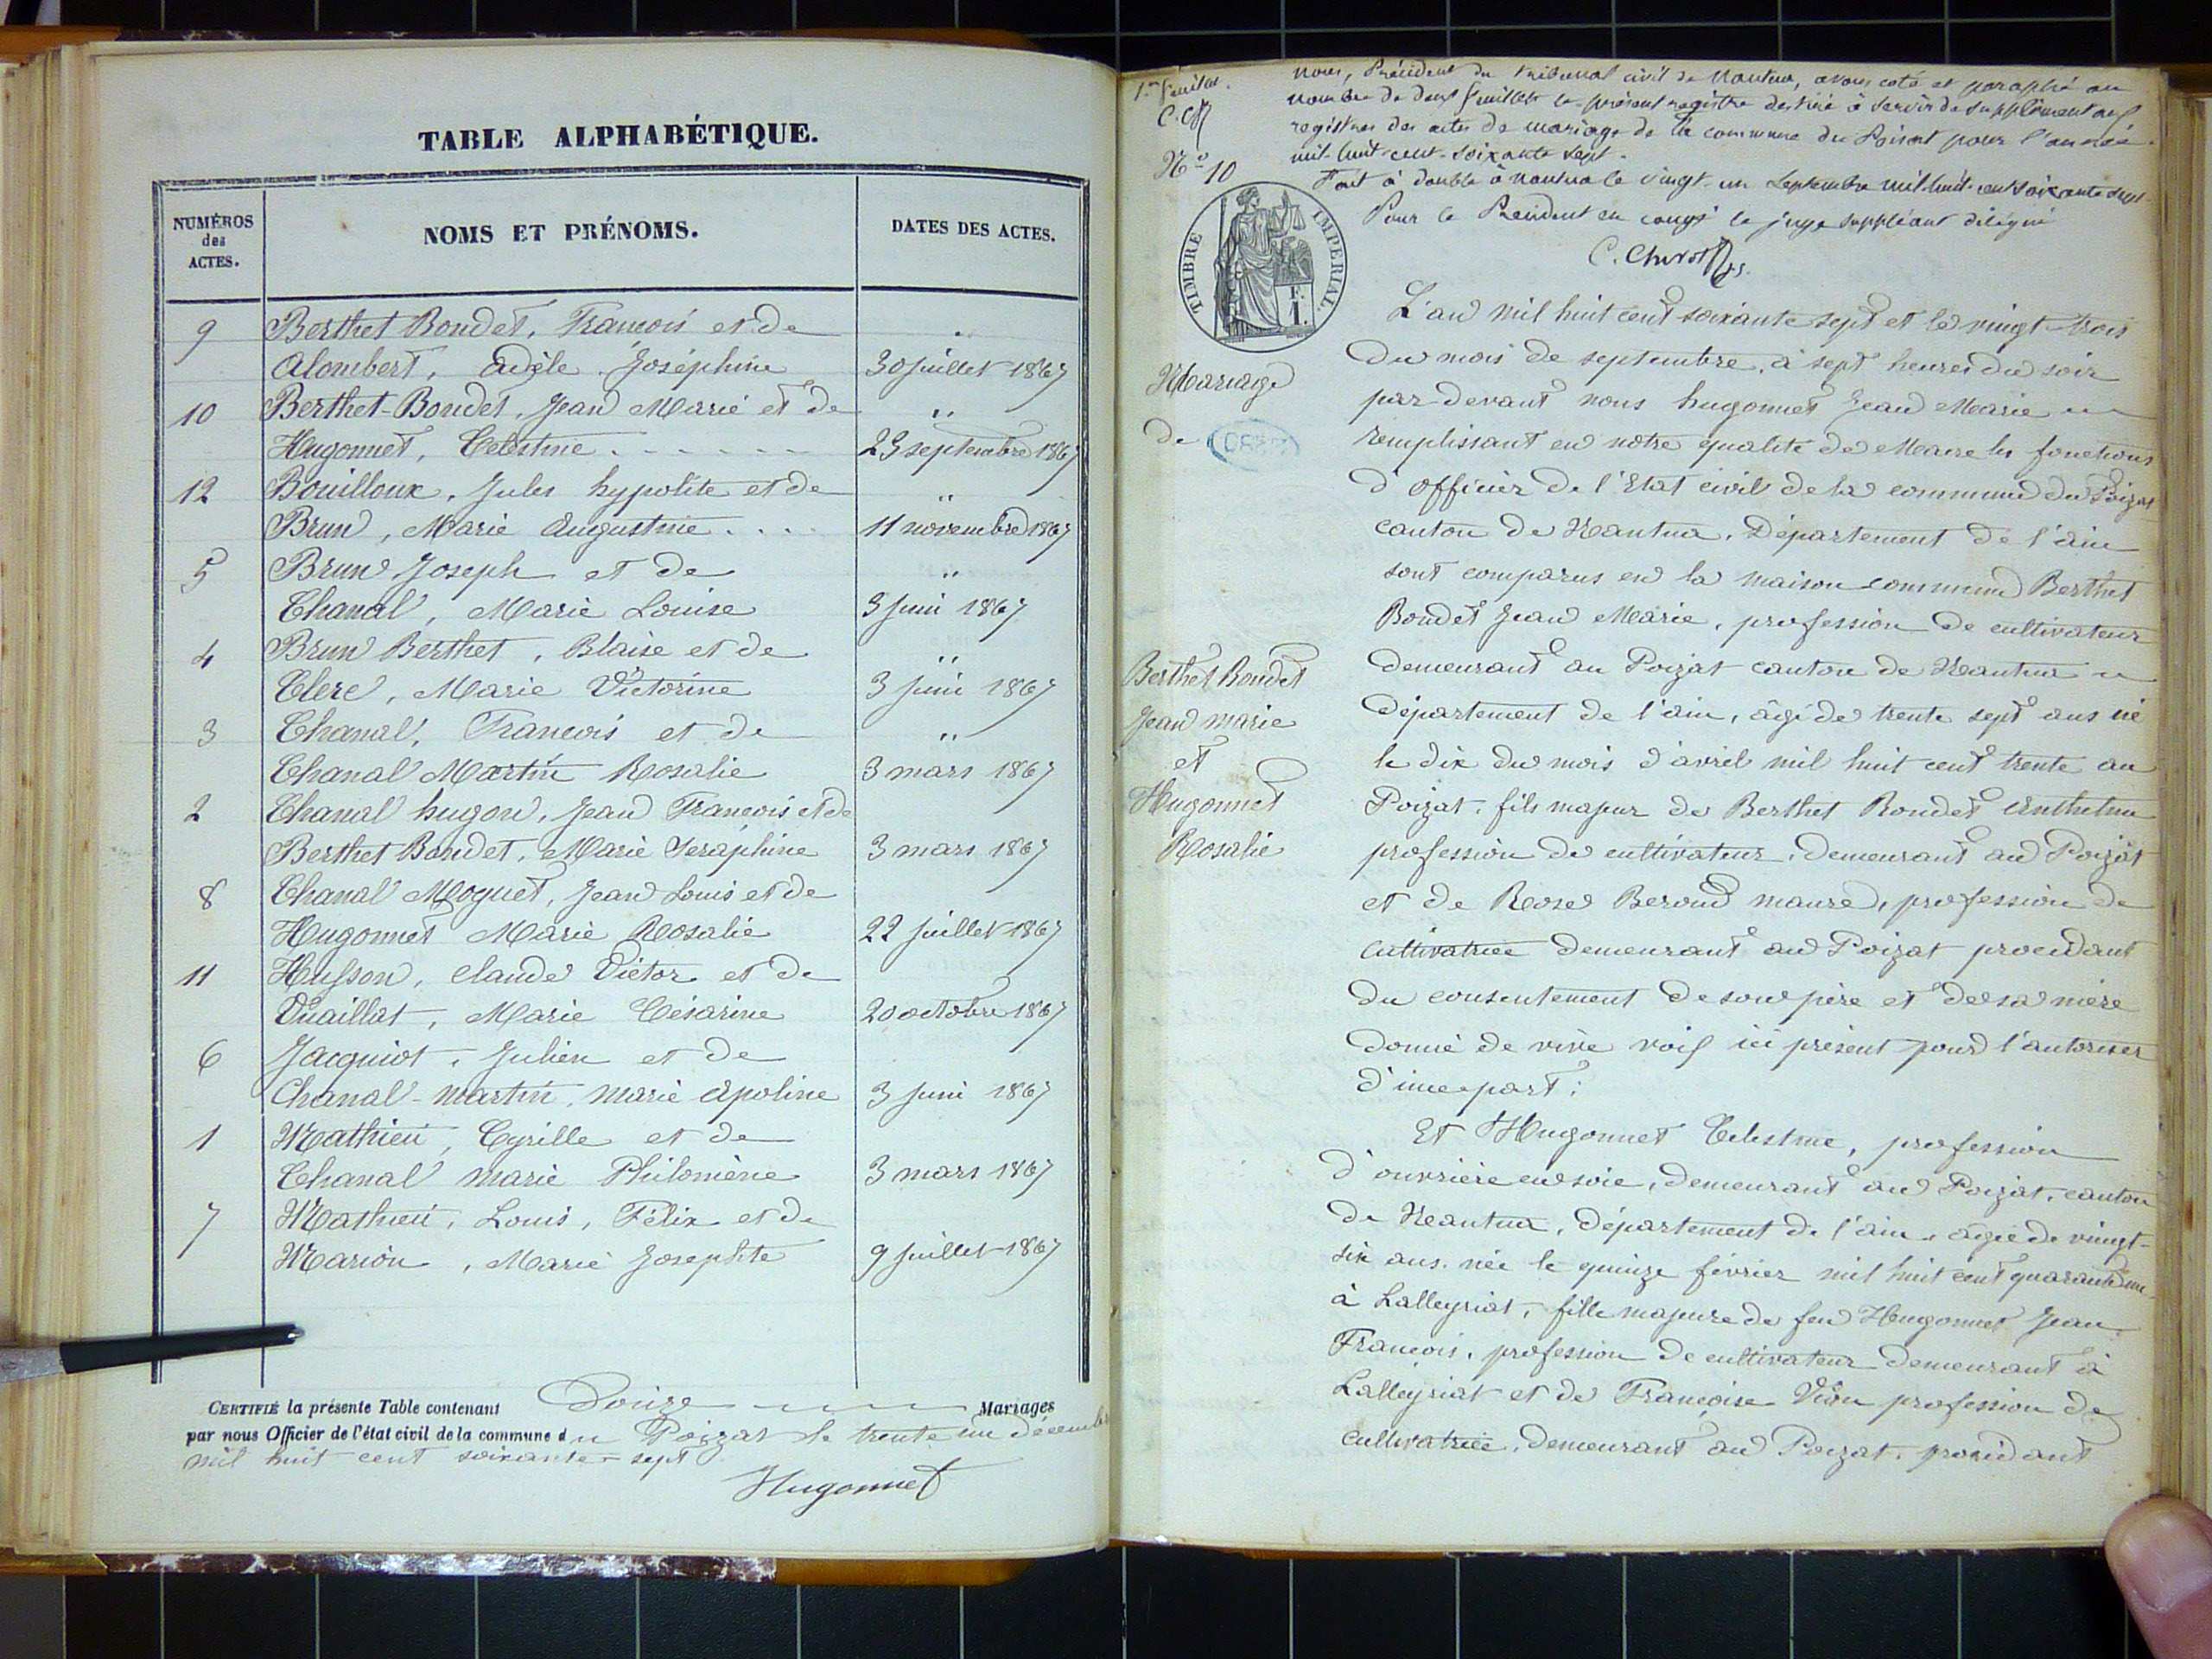 TABLE ALPHABÉTIQUE.
NUMÉROS des ACTES.
NOMS ET PRÉNOMS.
DATES DES ACTES.
9 Berthet Bondet, Francois et de "
Alombert, Adèle Joséphine 30 juillet 1867
10 Berthet-Bondet, Jean Marie et de "
Hugonnet, Celestine 23 septembre 1867
12 Bouilloux, Jules hypolite et de "
Brun, Marie Augustine 11 novembre 1867
5 Brun Joseph et de "
Chanal, Marie Louise 3 juin 1867
4 Brun Berthet, Blaise et de "
Clerc, Marie Victorine 3 juin 1867
3 Chanal, Francois et de "
Chanal Martin Rosalie 3 mars 1867
2 Chanal hugon, Jean Francois et de
Berthet Bondet, Marie Seraphine 3 mars 1867
8 Chanal Moguet, Jean Louis et de
Hugonnet Marie Rosalie 22 juillet 1867
11 Husson, Claude Victor et de
Vuaillat, Marie Césarine 20 octobre 1867
6 Jacquiot, Julien et de
Chanal-martin, marie Apoline 3 juin 1867
1 Mathieu, Cyrille et de
Chanal marie Philomène 3 mars 1867
7 Mathieu, Louis, Félix et de
Marion, Marie Josephte 9 juillet 1867
CERTIFIÉ la présente Table contenant Douze Mariages
par nous Officier de l'état civil de la commune du Poizat le trente un décembre
mil huit cent soixante-sept
Hugonnet
1er feuillet.
C. C.
N° 10
Nous, Président du tribunal civil de Nantua, avons coté et paraphé au
nombre de deux feuillets le présent registre destiné à servir de supplément aux
registres des actes de mariage de la commune du Poizat pour l'année
mil-huit-cent-soixante sept.
Fait à double à Nantua le vingt-un Septembre mil-huit-cent soixante sept
Pour le Président en congé le juge suppléant délégué
TIMBRE IMPERIAL.
Mariage
de
Berthet Bondet
Jean marie
et
Hugonnet
Rosalie
L'an mil huit cent soixante sept et le vingt-trois
du mois de septembre, à sept heures du soir
par-devant nous hugonnet Jean Marie
remplissant en notre qualité de Maire les fonctions
d'officier de l'Etat civil de la commune du Poizat
canton de Nantua, Département de l'ain
sont comparus en la maison commune Berthet
Bondet Jean Marie, profession de cultivateur
demeurant au Poizat canton de Nantua
Département de l'ain, âgé de trente sept ans né
le dix du mois d'avril mil huit cent trente au
Poizat, fils majeur de Berthet Bondet Anthelme
profession de cultivateur, demeurant au Poizat
et de Rose Beroud maure, profession de
cultivatrice demeurant au Poizat procédant
du consentement de son père et de sa mère
donné de vive voix ici présent pour l'autoriser
d'une part;
Et Hugonnet Celestine, profession
d'ouvrière en soie, demeurant au Poizat, canton
de Nantua, département de l'ain, âgée de vingt-
six ans, née le quinze février mil huit cent quarante un
à Lalleyriat, fille majeure de feu Hugonnet Jean
Francois, profession de cultivateur demeurant à
Lalleyriat et de Françoise Vion profession de
cultivatrice, demeurant au Poizat, procédant